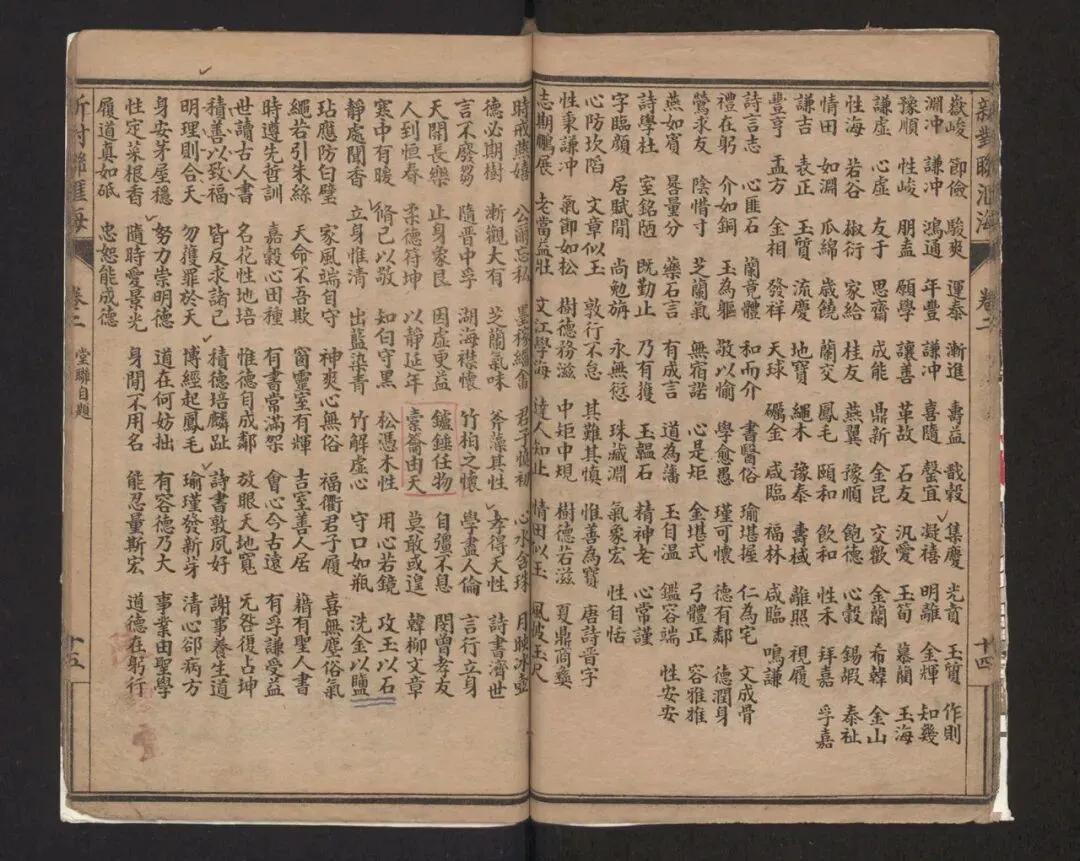 新對聯滙海 卷二 十四
嶽峻 節儉 駿爽 運泰 漸進 壽益 戩穀 集慶 光賁 玉質 作則
淵冲 謙冲 鴻通 年豐 謙冲 喜隨 罄宜 凝禧 明離 金輝 知幾
豫順 性峻 朋盍 願學 讓善 革故 石友 汎愛 玉筍 慕藺 玉海
謙虛 心虛 友于 思齋 成能 鼎新 金昆 交歡 金蘭 希韓 金山
性海 若谷 椒衍 家給 桂友 燕翼 豫順 飽德 心穀 錫嘏 泰祉
情田 如淵 瓜綿 歲饒 蘭交 鳳毛 頤和 飲和 性禾 拜嘉 孚嘉
謙吉 表正 玉質 流慶 地寶 繩木 豫泰 壽域 離照 視履
豐亨 盂方 金相 發祥 天球 礪金 咸臨 福林 咸臨 鳴謙
詩言志 心匪石 蘭竟體 和而介 書醫俗 瑜堪握 仁為宅 文成骨
禮在躬 介如銅 玉為軀 敬以愉 學愈愚 瑾可懷 德有鄰 德潤身
鶯求友 陰惜寸 芝蘭氣 無宿諾 心是矩 金堪式 弓體正 容雅雅
燕如賓 晷量分 藥石言 有成言 道為藩 玉自溫 鑑容端 性安安
詩學社 室銘陋 既勤止 乃有獲 玉韞石 精神老 心常謹
字臨顏 居賦閒 尚勉旃 永無愆 珠藏淵 氣象宏 性自恬
心防坎陷 文章似玉 敦行不怠 其難其慎 惟善為寶 唐詩晉字
性秉謙冲 氣節如松 樹德務滋 中矩中規 樹德若滋 夏鼎商彝
志期鵬展 老當益壯 文江學海 達人知止 情田似玉 風披玉尺
時戒燕嬉 公爾忘私 墨稼繼畬 君子慎初 心水含珠 月映冰壺
德必期樹 漸觀大有 芝蘭氣味 斧藻其性 孝得天性 詩書濟世
言不廢芻 隨晋中孚 湖海襟懷 竹柏之懷 學盡人倫 言行立身
天開長樂 止身家艮 因虛更益 鑪錘任物 自彊不息 閔曾孝友
人到恒春 柔德符坤 以靜延年 橐籥由天 莫敢或遑 韓柳文章
寒中有暖 脩己以敬 知白守黑 松憑木性 用心若鏡 攻玉以石
靜處聞香 立身惟清 出藍染青 竹解虛心 守口如瓶 洗金以鹽
玷應防白璧 家風端自守 神爽心無俗 福衢君子履 喜無塵俗氣
繩若引朱絲 天命不吾欺 窗靈室有輝 吉室善人居 藉有聖人書
時遵先哲訓 嘉穀心田種 有書常滿架 會心今古遠 有孚謙受益
世讀古人書 名花性地培 惟德自成鄰 放眼天地寬 无咎復占坤
積善以致福 皆反求諸己 積德培麟趾 詩書敦夙好 謝事養生道
明理則合天 勿獲罪於天 博經起鳳毛 瑜瑾發新芽 清心卻病方
身安茅屋穩 努力崇明德 道在何妨拙 有容德乃大 事業由聖學
性定菜根香 隨時愛景光 身閒不用名 能忍量斯宏 道德在躬行
履道真如砥 忠恕能成德
新對聯滙海 卷二 堂聯自題 十五